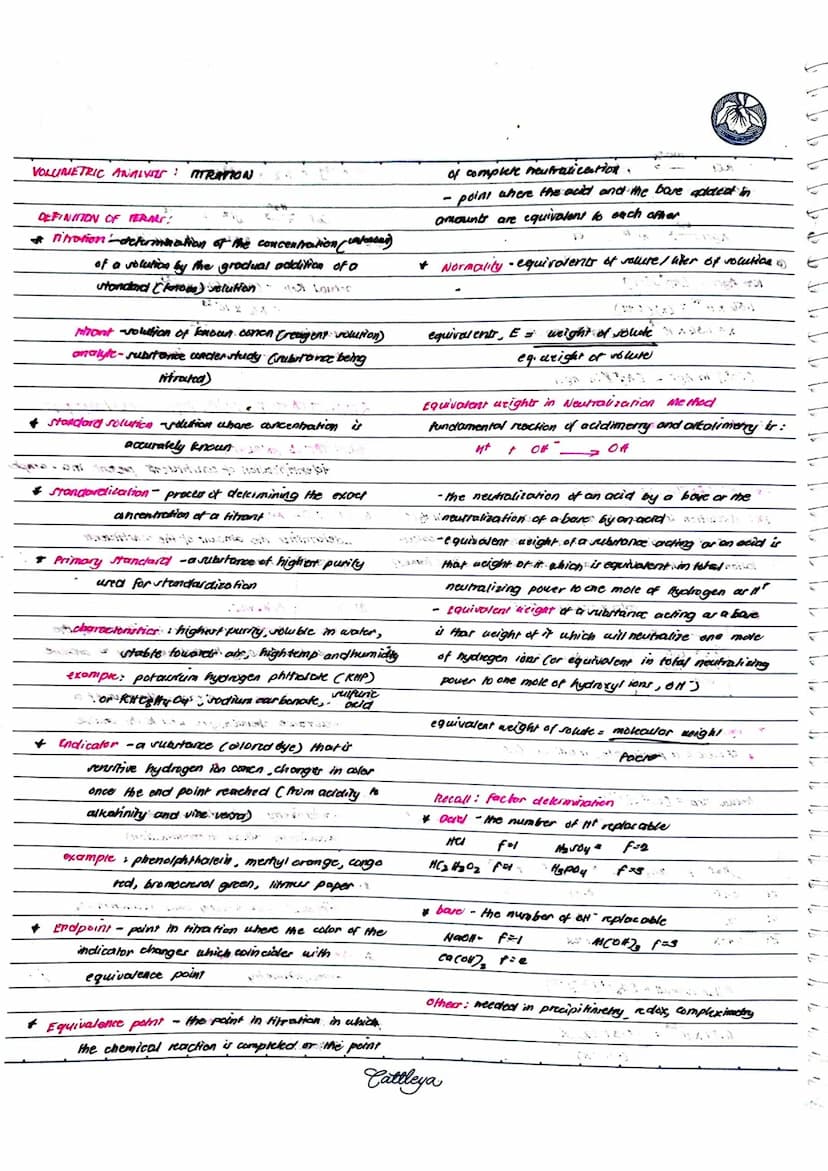 VOLUMETRIC ANALYSIS : TITRATION
DEFINITION OF TERMS:
* Titration - determination of the concentration (unknown)
of a solution by the gradual addition of a
standard (known) solution
titrant - solution of known concn (reagent solution)
analyte - substance under study (substance being
titrated)
* Standard solution - solution whose concentration is
accurately known
* Standardization - process of determining the exact
concentration of a titrant
* Primary standard - a substance of highest purity
used for standardization
characteristics : highest purity, soluble in water,
stable towards air, high temp and humidity
example : potassium hydrogen phthalate (KHP)
or KHC8H4O4 ; sodium carbonate, sulfuric acid
* Indicator - a substance (colored dye) that is
sensitive hydrogen ion concn, changes in color
once the end point reached (from acidity to
alkalinity and vice versa)
example : phenolphthalein, methyl orange, congo
red, bromocresol green, litmus paper
* Endpoint - point in titration where the color of the
indicator changes which coincides with
equivalence point
* Equivalence point - the point in titration in which
the chemical reaction is completed or the point
of complete neutralization.
- point where the acid and the base added in
amounts are equivalent to each other
* Normality - equivalents of solute / liter of solution
equivalents, E = weight of solute
eq. weight of solute
Equivalent weights in Neutralization Method
fundamental reaction of acidimetry and alkalimetry is :
H+ + OH- → OH
- the neutralization of an acid by a base or the
neutralization of a base by an acid
- equivalent weight of a substance acting as an acid is
that weight of it which is equivalent in total
neutralizing power to one mole of Hydrogen as H+
- Equivalent Weight of a substance acting as a base
is that weight of it which will neutralize one mole
of hydrogen ions (or equivalent in total neutralizing
power to one mole of hydroxyl ions, OH-)
equivalent weight of solute = molecular weight
factor
Recall : Factor determination
* Acid - the number of H+ replacable
HCl f=1 H2SO4 = f=2
HC2H3O2 f=1 H3PO4 f=3
* base - the number of OH- replacable
NaOH- f=1 Al(OH)3 f=3
Ca(OH)2 f=2
Others : needed in precipitimetry, redox, compleximetry
Cattleya